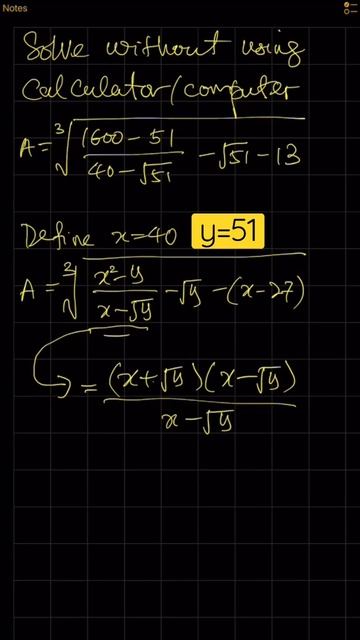 Notes
Solve without using
Calculator/computer
A = ∛((1600 - 51)/(40 - √51) - √51 - 13)
Define x=40 y=51
A = ∛((x² - y)/(x - √y) - √y - (x - 27))
= ((x + √y)(x - √y))/(x - √y)